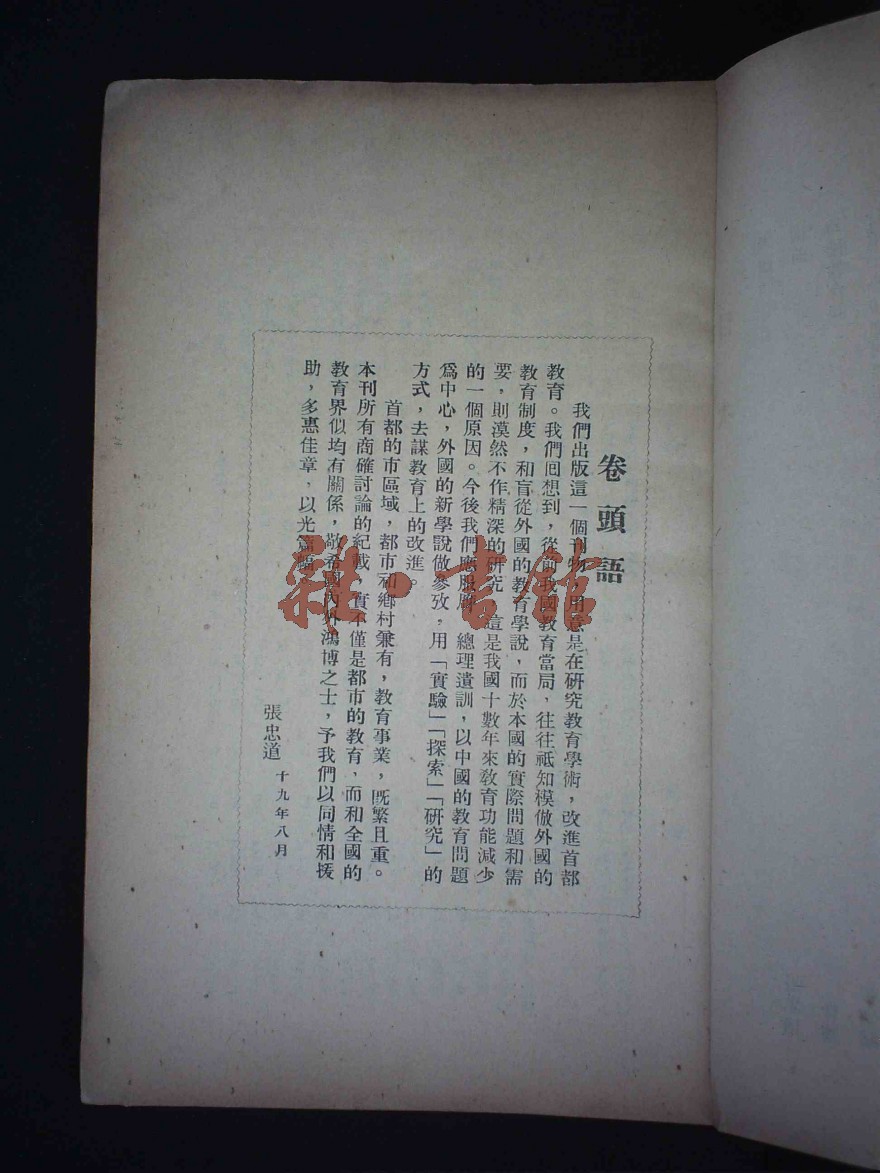 卷頭語
我們出版這一個刊物，用意是在硏究教育學術，改進首都
教育。我們囘想到，從前我國教育當局，往往祇知模倣外國的
教育制度，和盲從外國的教育學說，而於本國的實際問題和需
要，則漠然不作精深的硏究，這是我國十數年來教育功能減少
的一個原因。今後我們應服膺　總理遺訓，以中國的教育問題
爲中心，外國的新學說做參攷，用「實驗」「探索」「硏究」的
方式，去謀教育上的改進。
首都的市區域，都市和鄉村兼有，教育事業，旣繁且重。
本刊所有商確討論的紀載，實不僅是都市的教育，而和全國的
教育界似均有關係，敬希國內外鴻博之士，予我們以同情和援
助，多惠佳章，以光篇幅。
張忠道　十九年八月
雜·書館